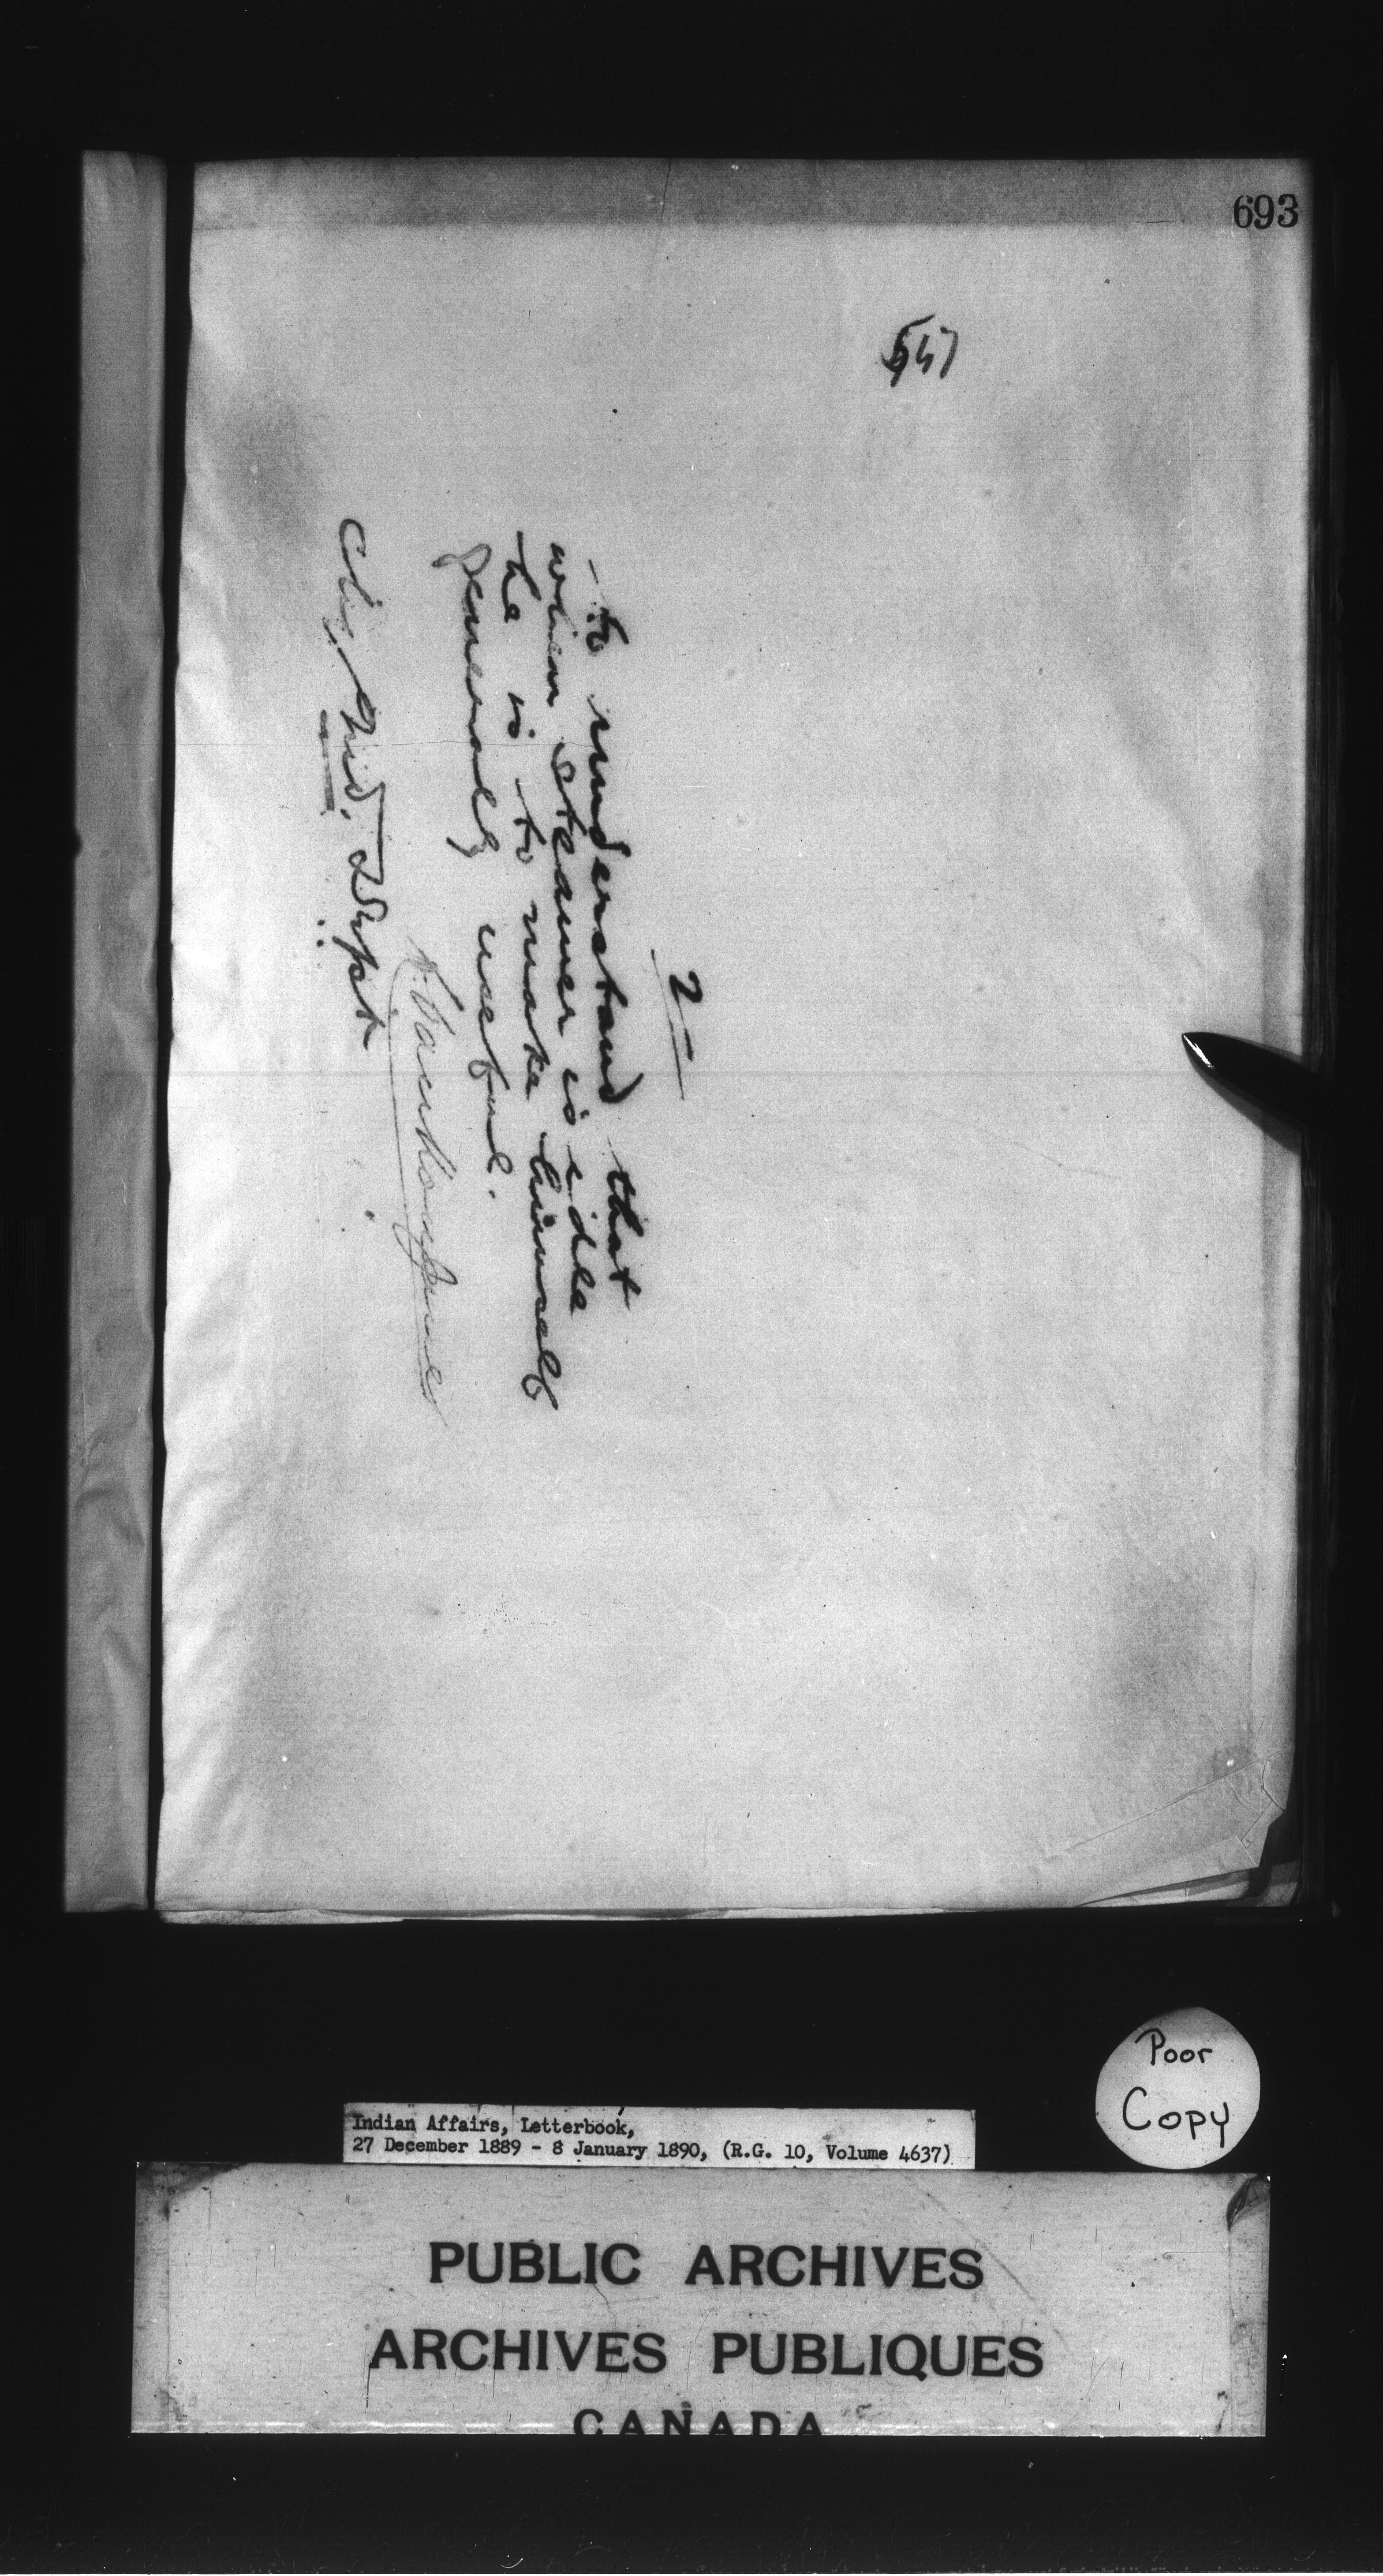 693
547
2-
to understand that
when steamer is idle
he is to make himself
generally useful.
L. Vankoughnet
Poor
Copy
Indian Affairs, Letterbook,
27 December 1889 - 8 January 1890, (R.G. 10, Volume 4637)
PUBLIC ARCHIVES
ARCHIVES PUBLIQUES
CANADA